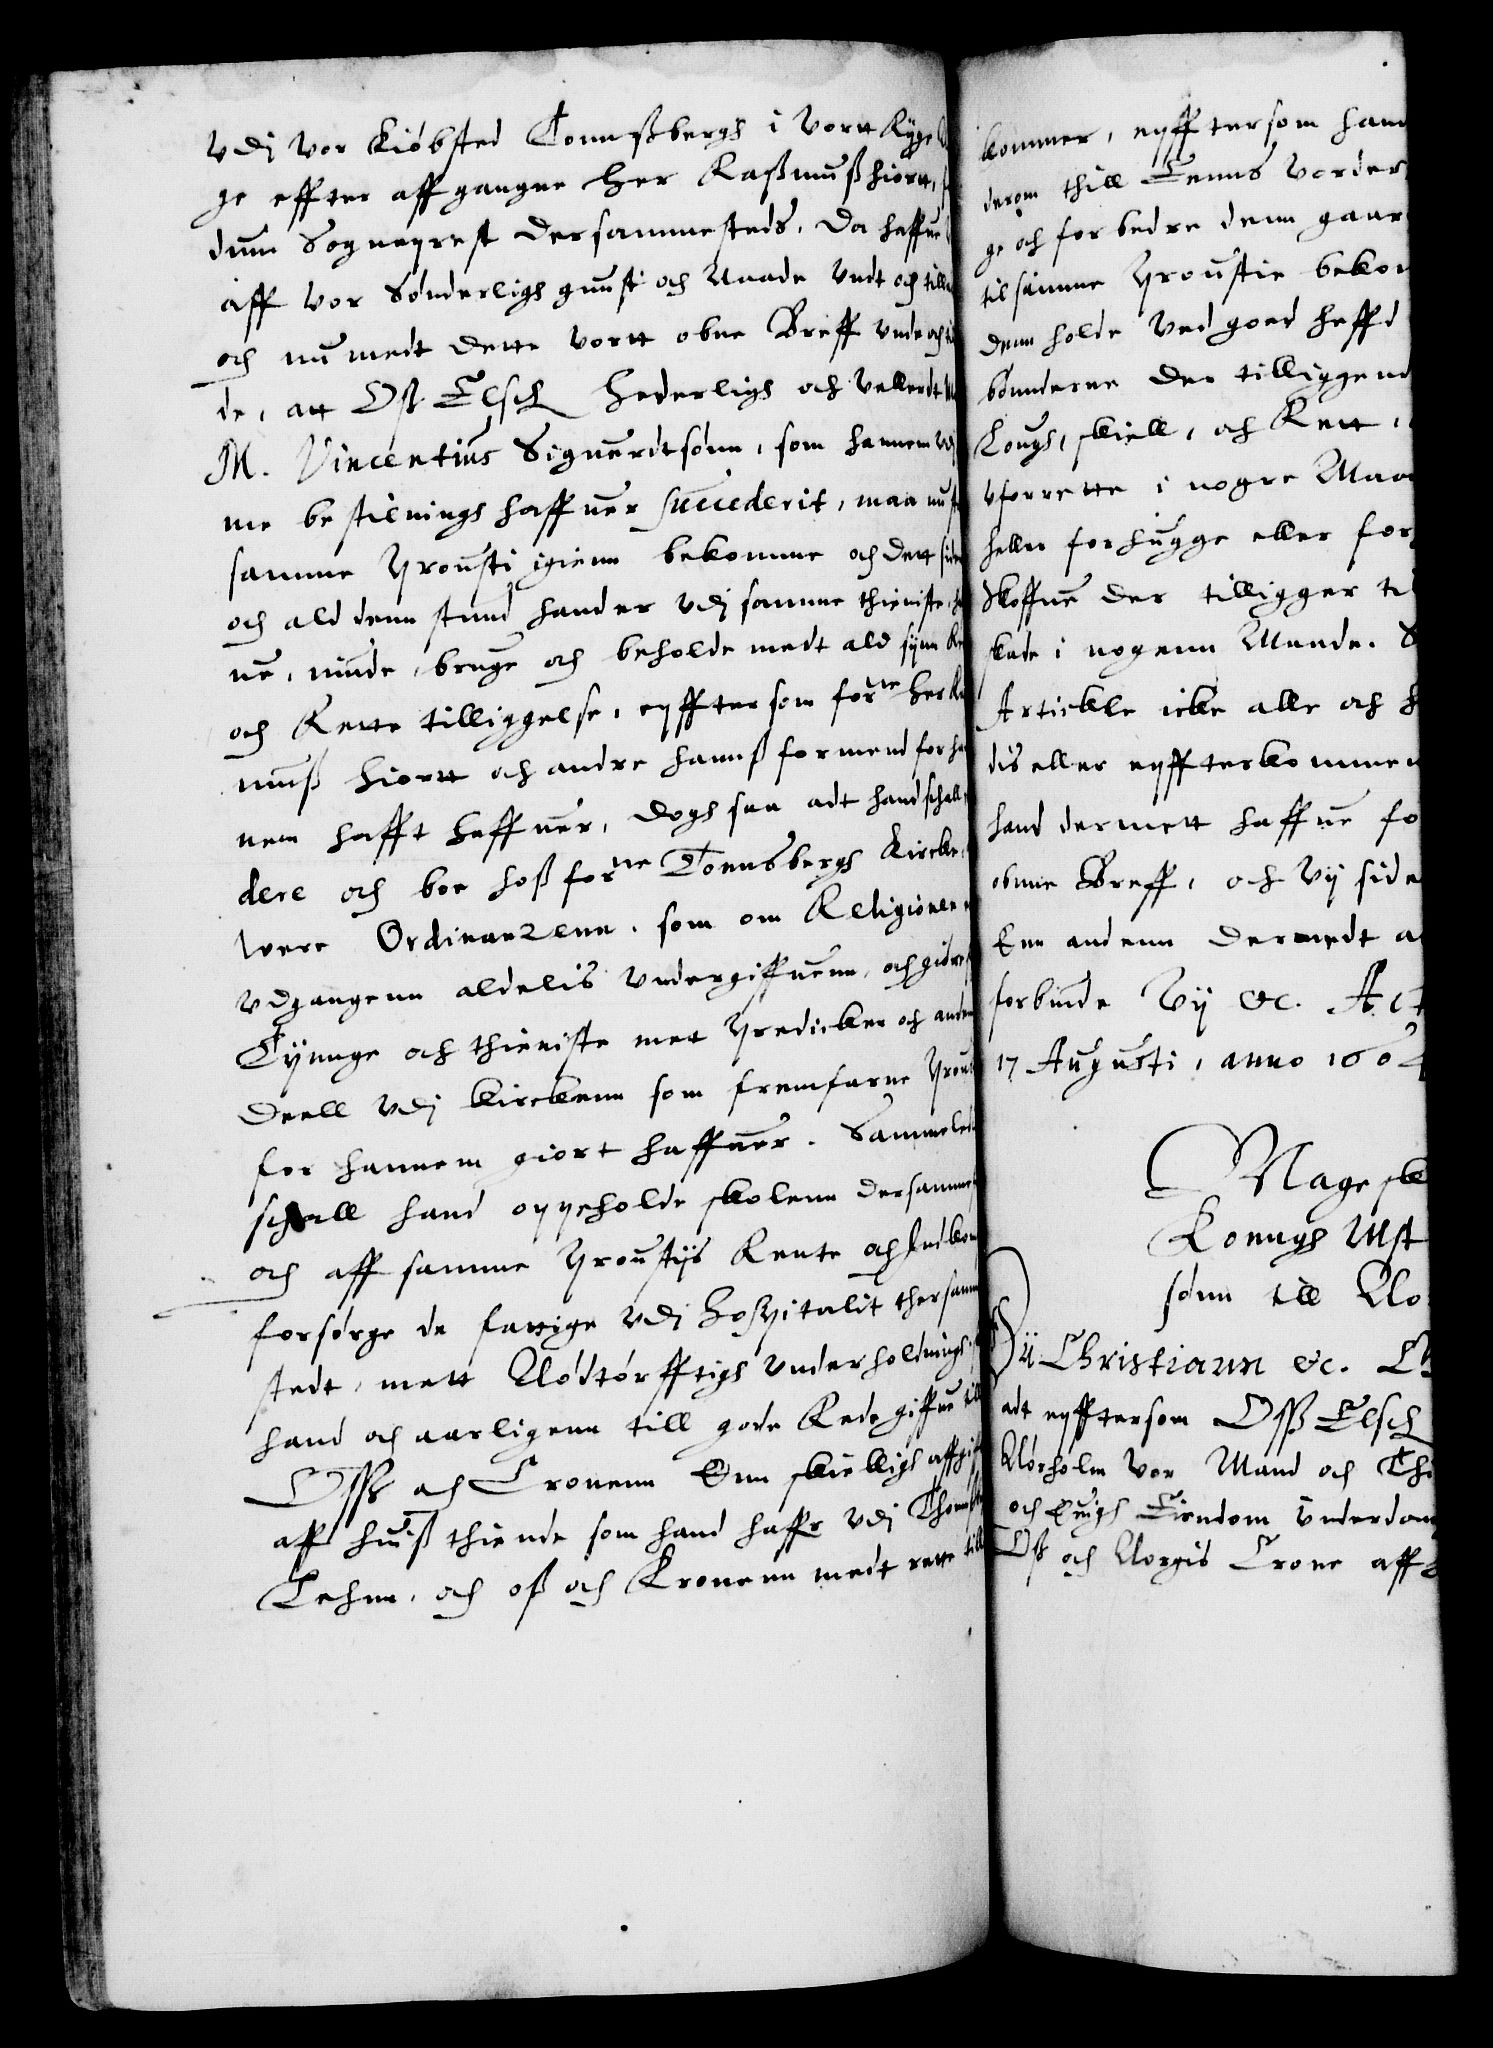 vdj vor Kiøbsted Tonnßbergh i vortt Rÿge
ge effter affgangne Her Raßmuß Hiortt,
dum Sogneprest dersammesteds, Da haffue
aff vor Sønderligh gunst och Naade vndt och till
och nu medt dette vortt obne Breff vnde och
de, att Oß Elsch Hederligh och Vellerdt
M. Vincentius Siguerdtsønn, som hannem vdj
me bestilnings haffuer succederit, maa nu
samme Prousti igienn bekomme och dett siden
och ald denn stund hand er vdj samme thieniste,
ue, niude, bruge och beholde medt ald sÿnn
och Rette tilliggelse, epfftersom forne Her
muß Hiortt och andre hannß formend for
nem hafft haffuer, Dogh saa adt hand schall
dere och boe hoß forne Tonnsbergh Kircke,
were Ordinanzenn, som om Religionen
vdgangenn aldelis vndergiffuenn, och giøre
Tÿnnge och thieniste mett Predicken och anden
Deell vdj kirckenn som fremfarne Prou
for hannem giort haffuer. Sammeled
schall hand oppeholde skolenn dersamme
och aff samme Proustiis Rente och Indkom
forsørge de fattige vdj Hospitalit thersamme
stedt, mett Nødtørfftigh vnderholdningh
hand och aarligenn till gode Rede giffue till
Oß och Cronenn Enn skielligh affgifft
aff huiß thiende som hand haffr vdj
Lehnn, och oß och Kronenn medt rette till
kommer, epfftersom hand
derom thill Eenns vorder
ge och forbedre denn gaar
til samme Proustie bekom
denn holde ved goed heffd
bønnderne der tilliggend
Lough, skiell, och Rett,
vforrette i nogre Maa
heller forhugge eller for
Skoffue der tilligger til
skade i nogenn Maade. S
Artickle icke alle och h
dis eller epffterkommen
hand dermett haffue fo
obnne Breff, och Vÿ side
Enn andenn dermedt a
forbinde Vÿ &c. Act
17 Augusti, anno 160
Mageskl
Konngh Mst
sønn till No
Vÿ Christiann &c.
adt epfftersom Oß Elsch
Nørholm vor Mand och Thi
och Euigh Eiendom vnderdan
Oß och Norgis Crone aff